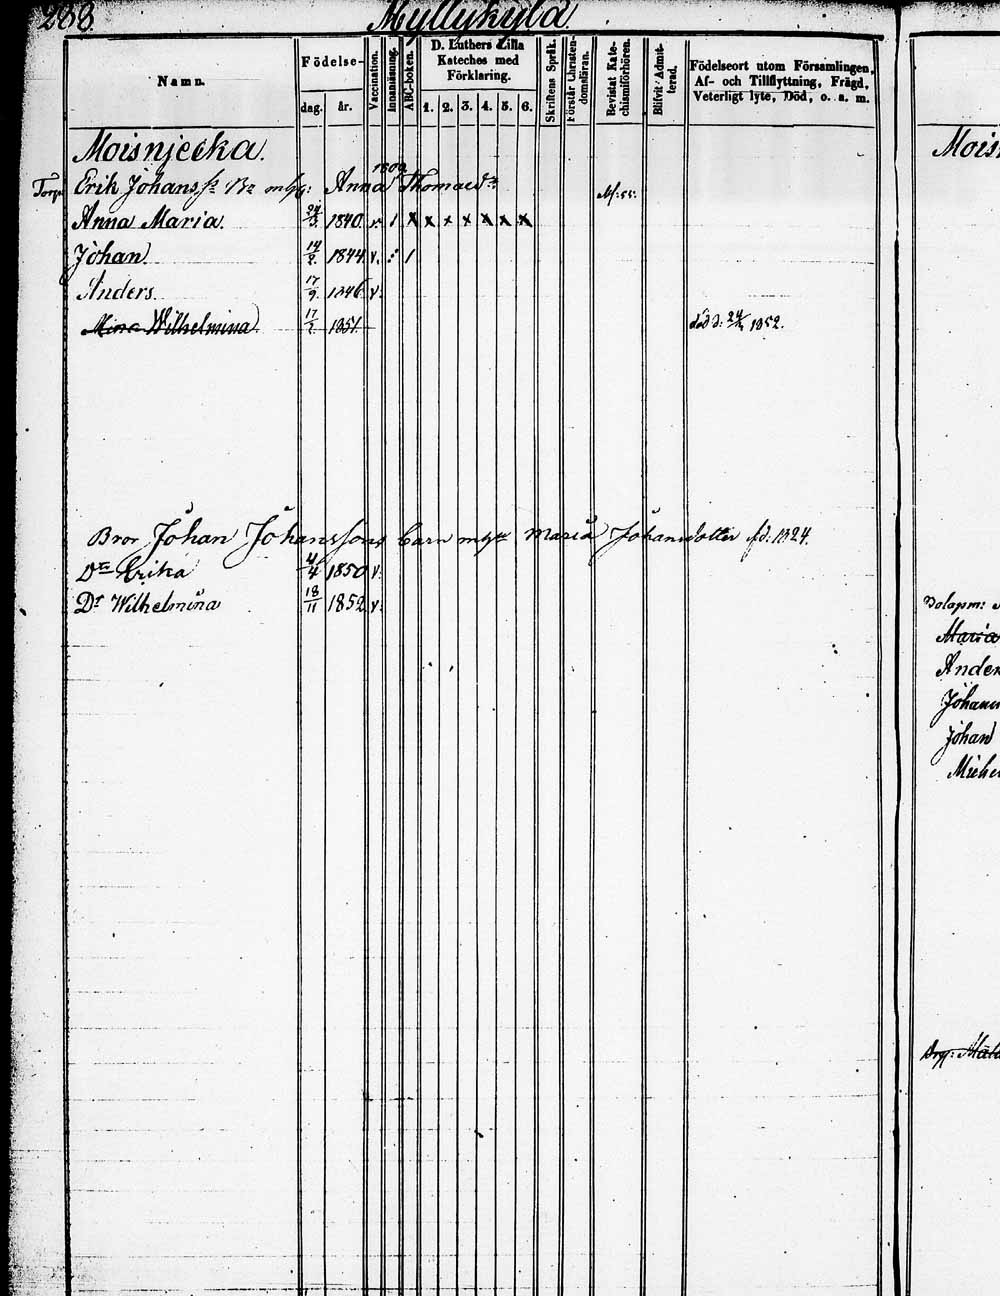 288.
Myllykylä
Namn.
Födelse-
dag.
år.
Vaccination.
Innanläsning.
ABC-boken.
D. Luthers Lilla
Kateches med
Förklaring.
1. 2. 3. 4. 5. 6.
Skriftens Språk.
Förstår Christen-
domsläran.
Bevistat Kate-
chismiförhören.
Blifvit Admit-
terad.
Födelseort utom Församlingen,
Af- och Tillflyttning, Frägd,
Veterligt lyte, Död, o. a. m.
Moisnjecka.
Torp. Erik Johanss: Anna Thomaed:r
Anna Maria. 24/3. 1840. v. 1 x x x x x x x
Johan. 14/2. 1844 v. : 1
Anders. 17/9. 1846 v.
Wilhelmina 1851 död d: 1852.
Bror Johan Johanssons barn m Maria Johansdotter fd: 1824.
Dr Erika 4/4 1850 v.
Dr Wilhelmina 18/11 1852 v.
Mois
Maria
Ander
Johan
Johan
Miche